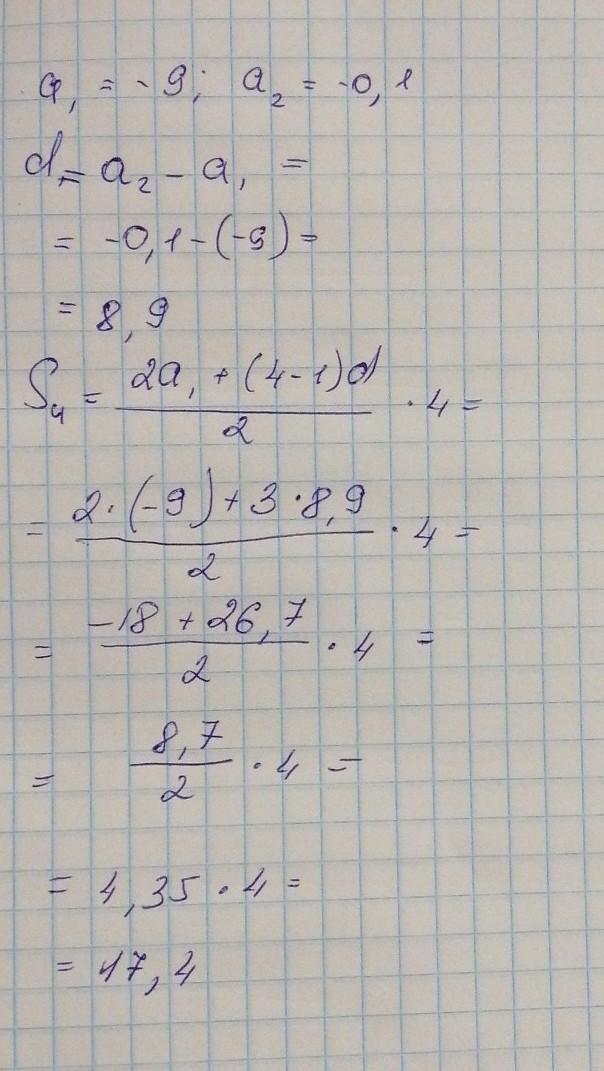 a₁ = -9; a₂ = -0,1
d = a₂ - a₁ =
= -0,1 - (-9) =
= 8,9
S₄ = (2a₁ + (4-1)d)/2 · 4 =
= (2·(-9) + 3·8,9)/2 · 4 =
= (-18 + 26,7)/2 · 4 =
= 8,7/2 · 4 =
= 4,35 · 4 =
= 17,4